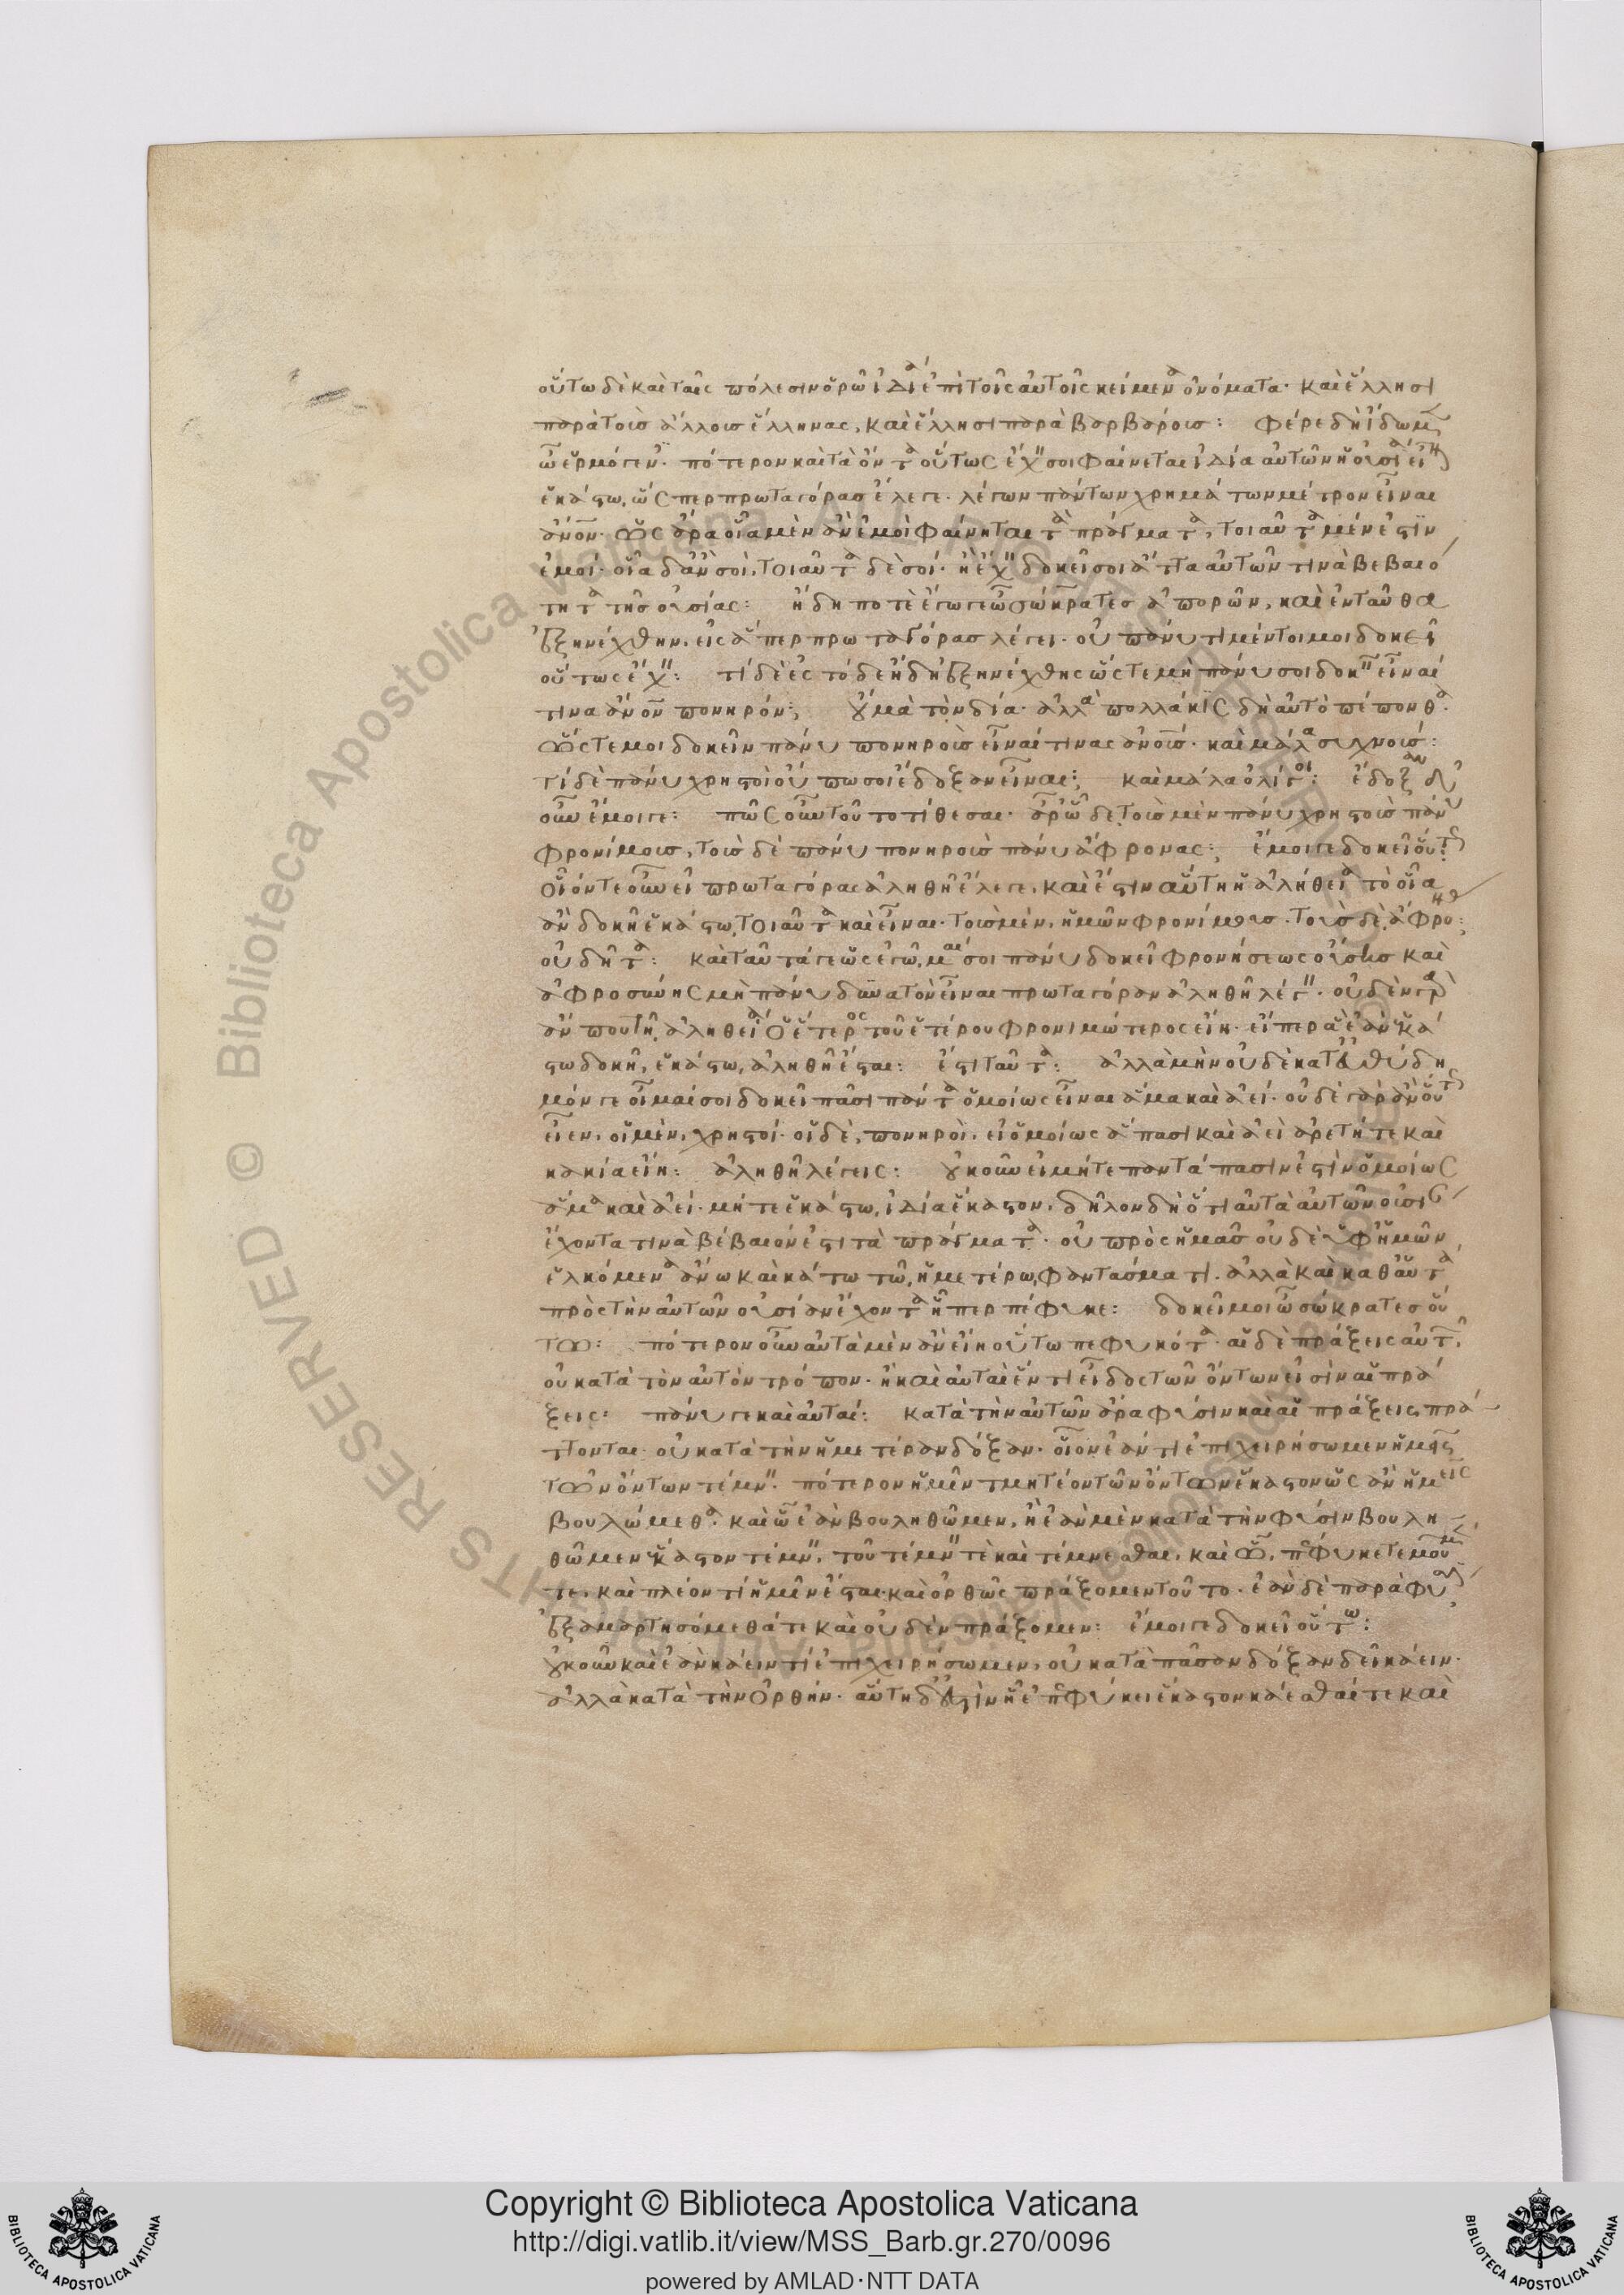 οὕτω δὲ καὶ ταῖς πόλεσιν ὁρῶ ἰδίᾳ ἐπὶ τοῖς αὐτοῖς κείμενα ὀνόματα· καὶ ἕλλησι
παρὰ τοὺς ἄλλους ἕλληνας, καὶ ἕλλησι παρὰ βαρβάροις: φέρε δὴ ἴδωμεν
ὦ ἑρμόγενες· πότερον καὶ τὰ ὄντα οὕτως ἔχειν σοι φαίνεται ἰδία αὐτῶν ἡ οὐσία εἶναι
ἑκάστω, ὥσπερ πρωταγόρας ἔλεγε· λέγων πάντων χρημάτων μέτρον εἶναι
ἄνον· ὡς ἄρα οἷα μὲν ἂν ἐμοὶ φαίνηται τὰ πράγματα, τοιαῦτα μέν ἐστιν
ἐμοί· οἷα δ' ἂν σοί, τοιαῦτα δὲ σοί· ἢ ἔχειν δοκεῖ σοι ἄττα αὐτῶν τινὰ βεβαιό
τητα τῆς οὐσίας: ἤδη ποτὲ ἔγωγε ὦ σώκρατες ἀπορῶν, καὶ ἐνταῦθα
ἐξηνέχθην, εἰς ἅπερ πρωταγόρας λέγει· οὐ πάνυ τι μέντοι μοι δοκεῖ
οὕτως ἔχειν: τί δὲ ἐς τόδε ἤδη ἐξηνέχθης ὥστε μὴ πάνυ σοι δοκεῖν εἶναί
τινα ἄνον πονηρόν; οὐ μὰ τὸν δία· ἀλλὰ πολλάκις δὴ αὐτὸ πέπονθα·
ὥστε μοι δοκεῖν πάνυ πονηροὺς εἶναί τινας ἄνους· καὶ μάλα συχνούς:
τί δὲ πάνυ χρηστοὶ οὔπω σοι ἔδοξαν εἶναι; καὶ μάλα ὀλίγοι: ἔδοξαν δ'
οὖν ἔμοιγε: πῶς οὖν τοῦτο τίθεσαι· ἆρ' ὧδε τοὺς μὲν πάνυ χρηστοὺς πάνυ
φρονίμους, τοὺς δὲ πάνυ πονηροὺς πάνυ ἄφρονας; ἔμοιγε δοκεῖ οὕτως:
οἷόν τε οὖν εἰ πρωταγόρας ἀληθῆ ἔλεγε, καὶ ἔστιν αὕτη ἡ ἀλήθεια τὸ οἷα
ἂν δοκῇ ἑκάστω, τοιαῦτα καὶ εἶναι· τοὺς μὲν, ἡμῶν φρονίμους· τοὺς δὲ, ἄφρονας;
οὐ δῆτα: καὶ ταῦτά γε ὡς ἐγῶμαί σοι πάνυ δοκεῖ φρονήσεως οὔσης καὶ
ἀφροσύνης μὴ πάνυ δυνατὸν εἶναι πρωταγόραν ἀληθῆ λέγειν· οὐδὲν γὰρ
ἄν που τῇ ἀληθείᾳ ὁ ἕτερος τοῦ ἑτέρου φρονιμώτερος εἴη· εἴπερ ἃ ἐὰν ἑκά
στω δοκῇ, ἑκάστω, ἀληθῆ ἔσται: ἔστι ταῦτα: ἀλλὰ μὴν οὐδὲ κατ' εὐθύδη
μόν γε οἶμαί σοι δοκεῖ πᾶσι πάντα ὁμοίως εἶναι ἅμα καὶ ἀεί· οὐδὲ γὰρ ἂν οὕτως
εἶεν, οἱ μὲν, χρηστοί· οἱ δὲ, πονηροὶ, εἰ ὁμοίως ἅπασι καὶ ἀεὶ ἀρετή τε καὶ
κακία εἴη: ἀληθῆ λέγεις: οὐκοῦν εἰ μήτε πάντα πᾶσιν ἐστὶν ὁμοίως
ἅμα καὶ ἀεί· μήτε ἑκάστω, ἰδία ἕκαστον, δῆλον δὴ ὅτι αὐτὰ αὑτῶν οὐσίαν
ἔχοντα τινὰ βέβαιόν ἐστι τὰ πράγματα· οὐ πρὸς ἡμᾶς οὐδὲ ὑφ' ἡμῶν
ἑλκόμενα ἄνω καὶ κάτω τῶ, ἡμετέρω, φαντάσματι· ἀλλὰ καὶ καθ' αὑτὰ
πρὸς τὴν αὑτῶν οὐσίαν ἔχοντα ἧπερ πέφυκε: δοκεῖ μοι ὦ σώκρατες οὕ
τω: πότερον οὖν αὐτὰ μὲν ἂν εἴη οὕτω πεφυκότα· αἱ δὲ πράξεις αὐτῶν,
οὐ κατὰ τὸν αὐτὸν τρόπον· ἢ καὶ αὐταὶ ἕν τι εἶδος τῶν ὄντων εἰσὶν αἱ πρά
ξεις: πάνυ γε καὶ αὐταί: κατὰ τὴν αὑτῶν ἄρα φύσιν καὶ αἱ πράξεις πρά
ττονται· οὐ κατὰ τὴν ἡμετέραν δόξαν· οἷον ἐάν τι ἐπιχειρήσωμεν ἡμεῖς
τῶν ὄντων τέμνειν· πότερον ἡμῖν τμητέον τῶν ὄντων ἕκαστον ὡς ἂν ἡμεῖς
βουλώμεθα· καὶ ὧ ἐὰν βουληθῶμεν, ἢ ἐὰν μὲν κατὰ τὴν φύσιν βουλη
θῶμεν ἕκαστον τέμνειν, τοῦ τέμνειν τε καὶ τέμνεσθαι, καὶ ὧ, πέφυκε τεμοῦμέν
τε, καὶ πλέον τι ἡμῖν ἔσται καὶ ὀρθῶς πράξομεν τοῦτο· ἐὰν δὲ παρὰ φύσιν,
ἐξαμαρτησόμεθά τε καὶ οὐδὲν πράξομεν: ἔμοιγε δοκεῖ οὕτω:
οὐκοῦν καὶ ἐὰν κάειν τι ἐπιχειρήσωμεν, οὐ κατὰ πᾶσαν δόξαν δεῖ κάειν·
ἀλλὰ κατὰ τὴν ὀρθήν· αὕτη δ' ἐστὶν ἧ ἐπεφύκει ἕκαστον κάεσθαί τε καὶ
Copyright © Biblioteca Apostolica Vaticana
http://digi.vatlib.it/view/MSS_Barb.gr.270/0096
powered by AMLAD·NTT DATA
BIBLIOTECA APOSTOLICA VATICANA
BIBLIOTECA APOSTOLICA VATICANA